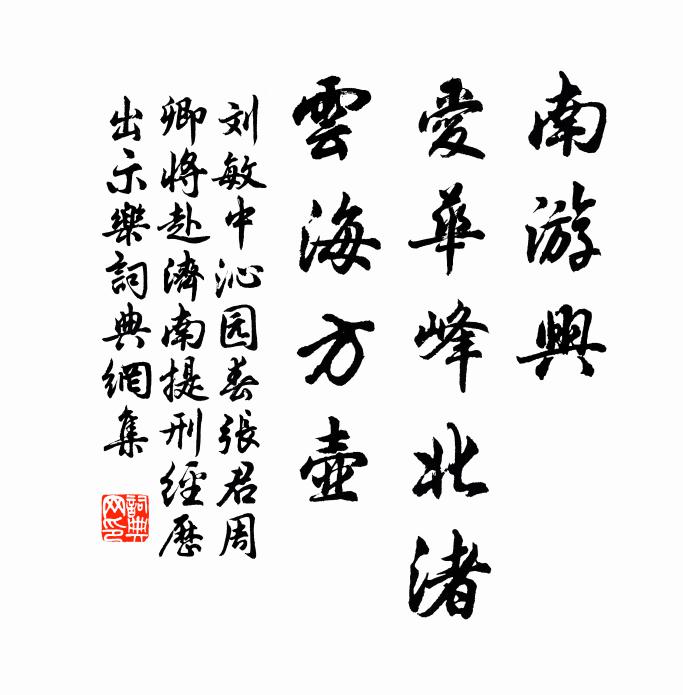 南游興
愛華峰北渚
雲海方壺
刘敏中沁园春張君周
卿將赴濟南提刑經歷
出示樂詞典網集
詞典网印